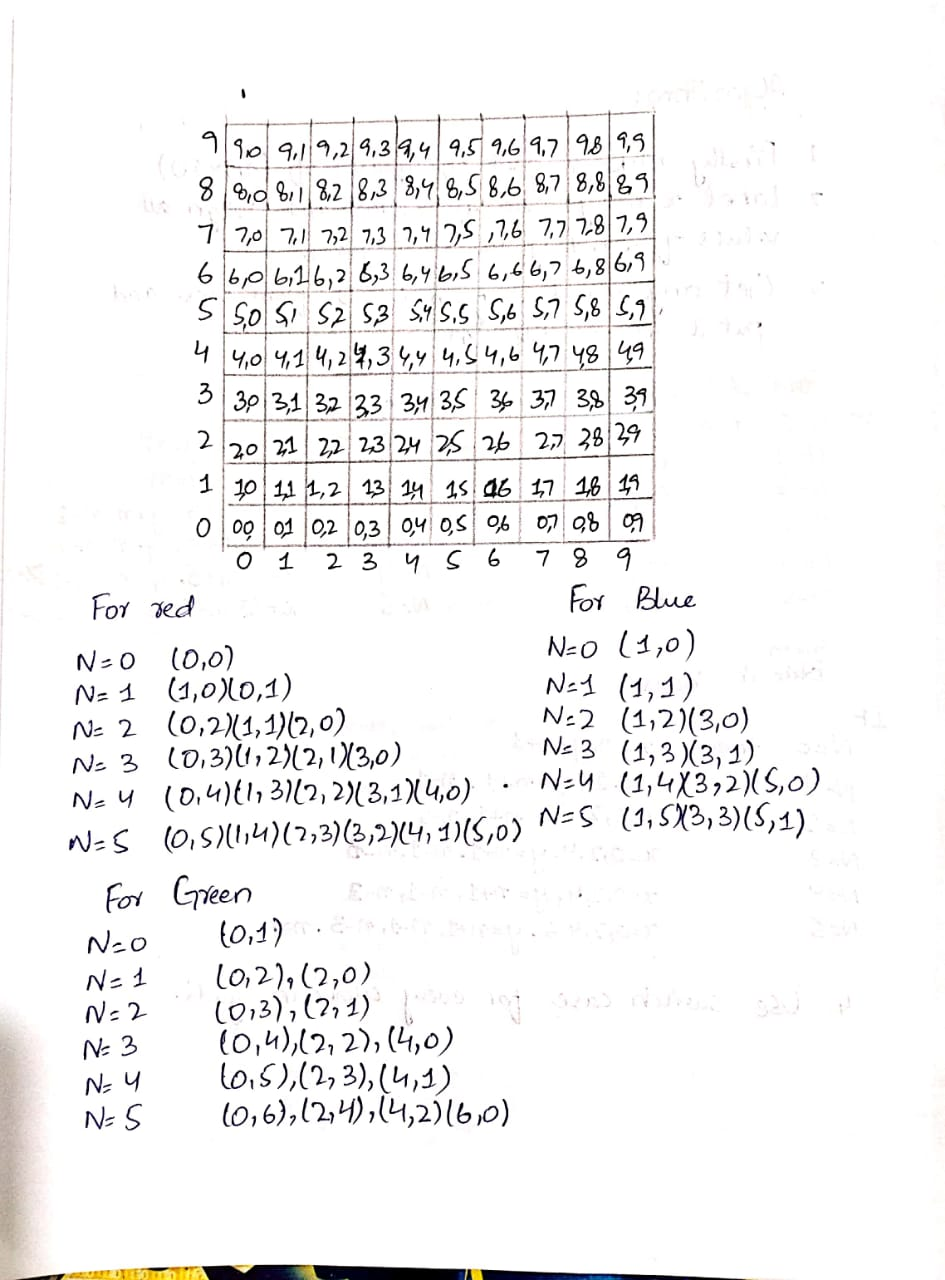 9 9,0 9,1 9,2 9,3 9,4 9,5 9,6 9,7 9,8 9,9
8 8,0 8,1 8,2 8,3 8,4 8,5 8,6 8,7 8,8 8,9
7 7,0 7,1 7,2 7,3 7,4 7,5 7,6 7,7 7,8 7,9
6 6,0 6,1 6,2 6,3 6,4 6,5 6,6 6,7 6,8 6,9
5 5,0 5,1 5,2 5,3 5,4 5,5 5,6 5,7 5,8 5,9
4 4,0 4,1 4,2 4,3 4,4 4,5 4,6 4,7 4,8 4,9
3 3,0 3,1 3,2 3,3 3,4 3,5 3,6 3,7 3,8 3,9
2 2,0 2,1 2,2 2,3 2,4 2,5 2,6 2,7 2,8 2,9
1 1,0 1,1 1,2 1,3 1,4 1,5 1,6 1,7 1,8 1,9
0 0,0 0,1 0,2 0,3 0,4 0,5 0,6 0,7 0,8 0,9
0 1 2 3 4 5 6 7 8 9
For red
N=0 (0,0)
N=1 (1,0)(0,1)
N=2 (0,2)(1,1)(2,0)
N=3 (0,3)(1,2)(2,1)(3,0)
N=4 (0,4)(1,3)(2,2)(3,1)(4,0)
N=5 (0,5)(1,4)(2,3)(3,2)(4,1)(5,0)
For Blue
N=0 (1,0)
N=1 (1,1)
N=2 (1,2)(3,0)
N=3 (1,3)(3,1)
N=4 (1,4)(3,2)(5,0)
N=5 (1,5)(3,3)(5,1)
For Green
N=0 (0,1)
N=1 (0,2),(2,0)
N=2 (0,3),(2,1)
N=3 (0,4),(2,2),(4,0)
N=4 (0,5),(2,3),(4,1)
N=5 (0,6),(2,4),(4,2)(6,0)